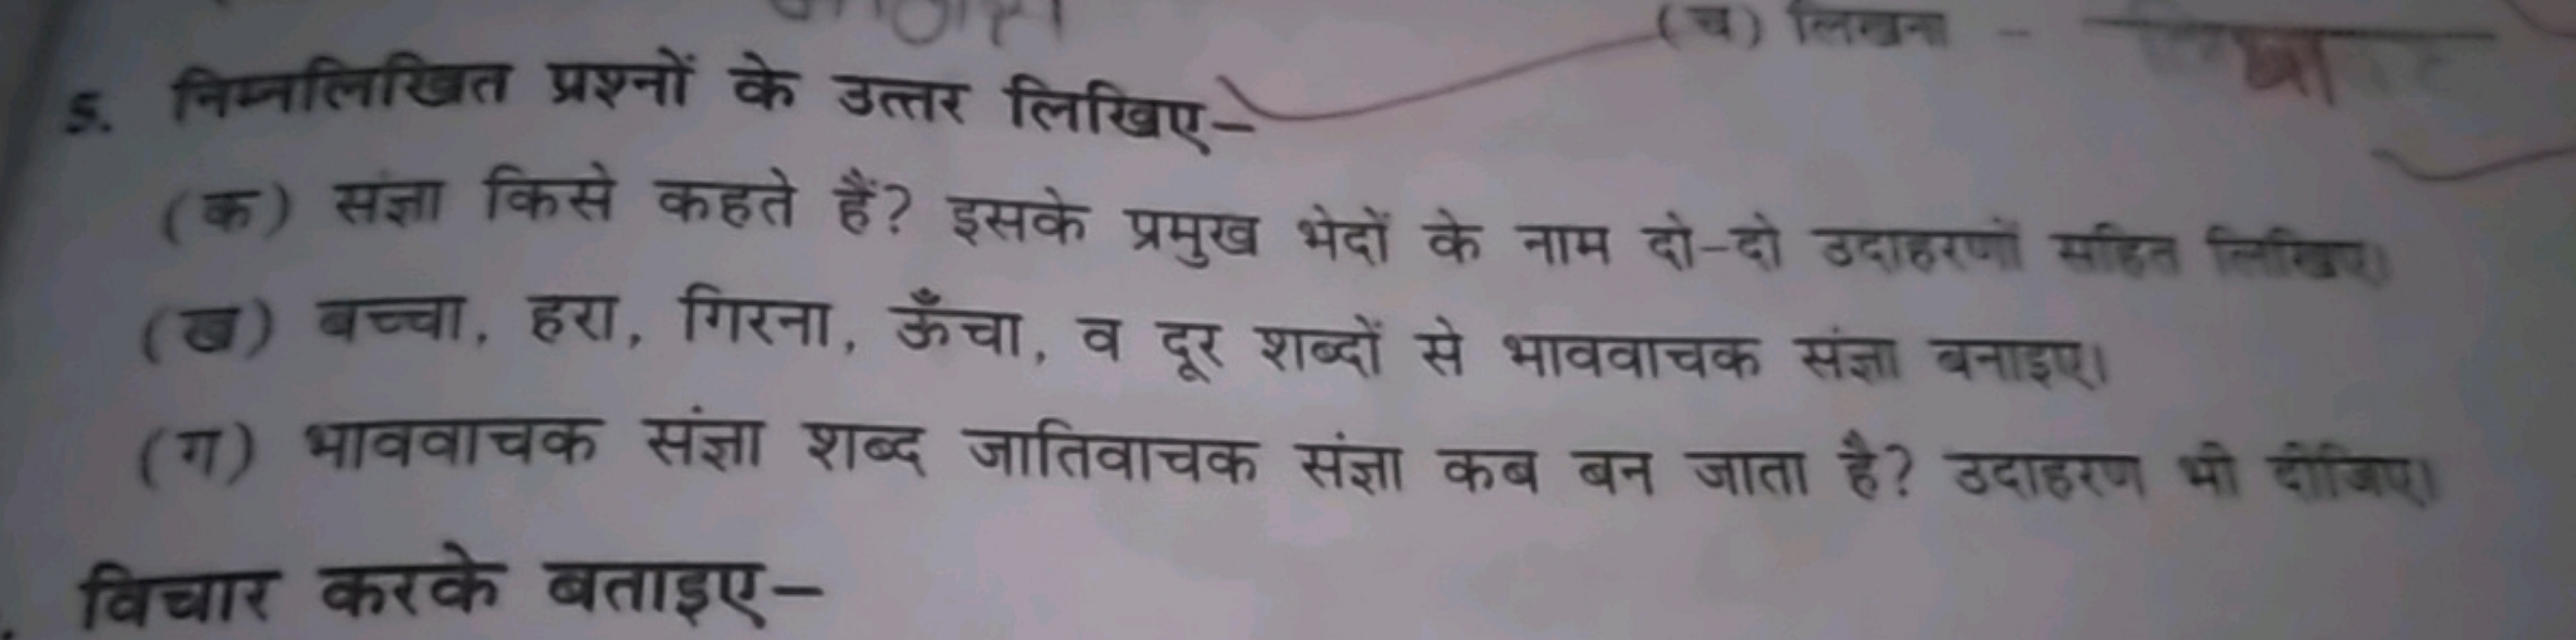 (च) लिखना -
5. निम्नलिखित प्रश्नों के उत्तर लिखिए-
(क) संज्ञा किसे कहते हैं? इसके प्रमुख भेदों के नाम दो-दो उदाहरणों सहित लिखिए।
(ख) बच्चा, हरा, गिरना, ऊँचा, व दूर शब्दों से भाववाचक संज्ञा बनाइए।
(ग) भाववाचक संज्ञा शब्द जातिवाचक संज्ञा कब बन जाता है? उदाहरण भी दीजिए।
विचार करके बताइए-